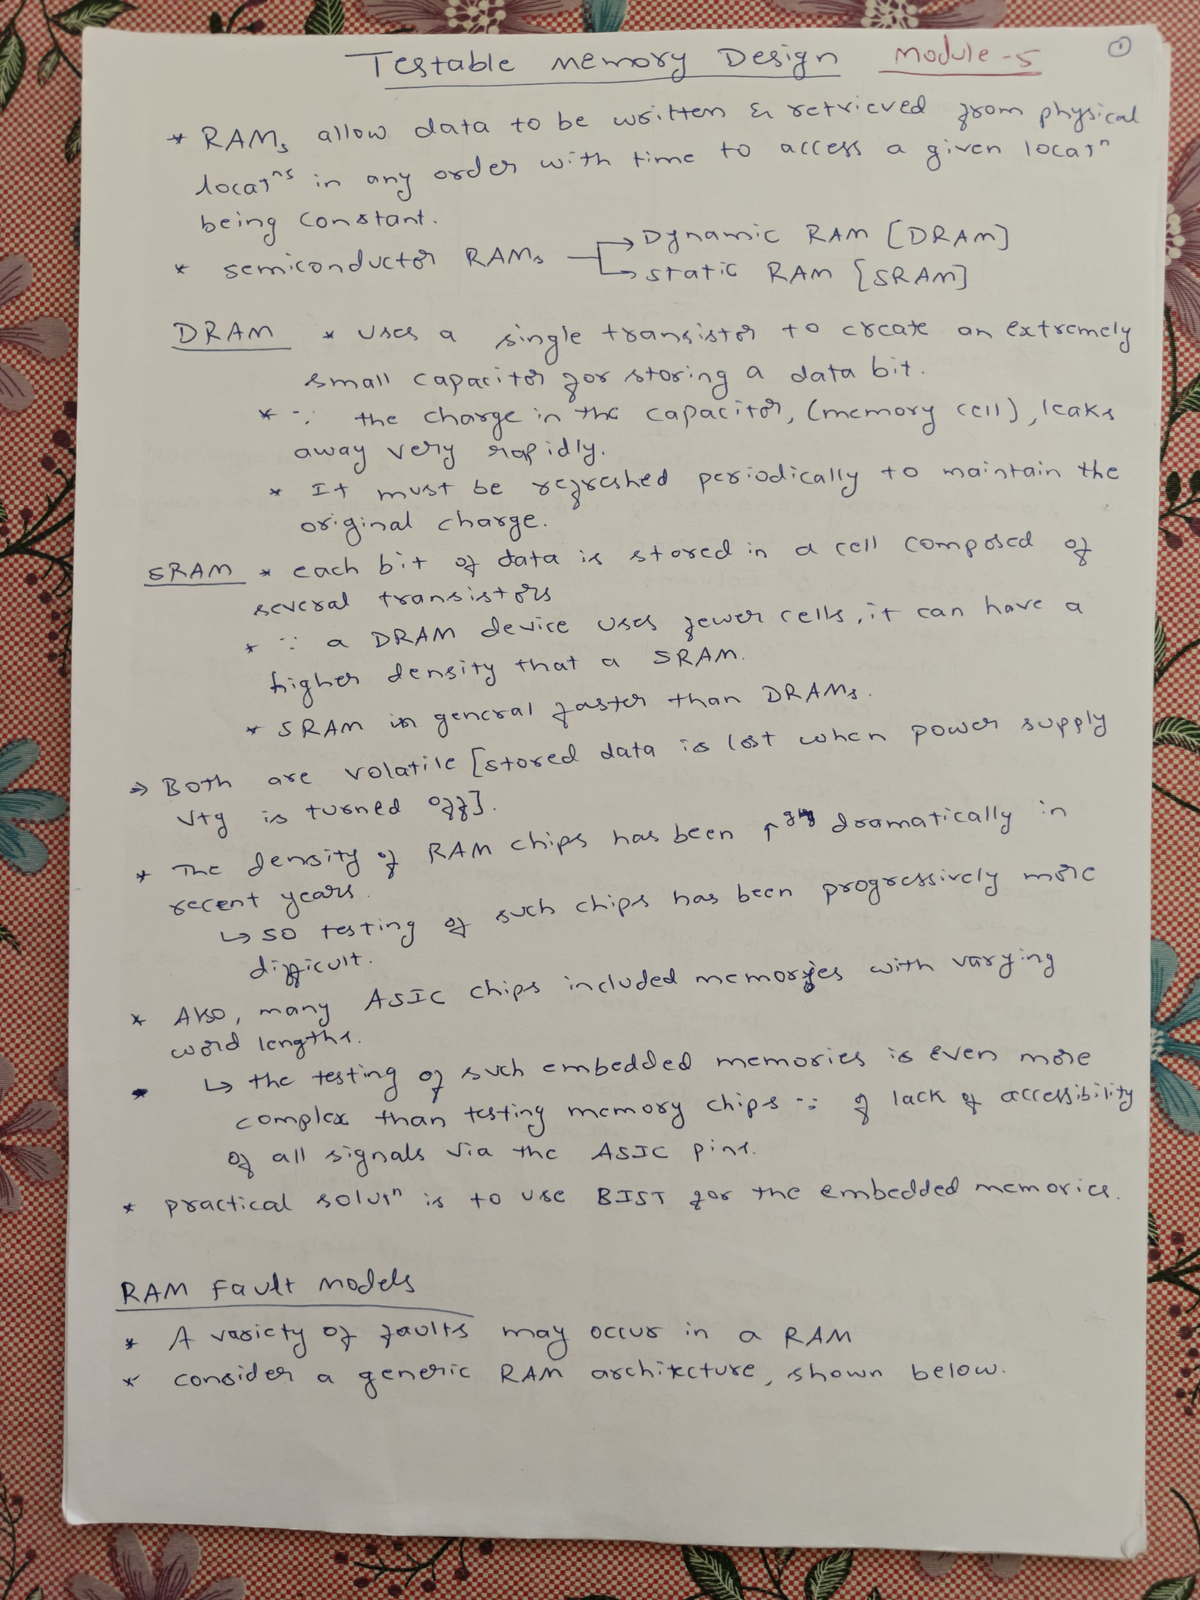 Testable memory Design Module-5 1
* RAMs allow data to be written & retrieved from physical
locatns in any order with time to access a given locatn
being constant.
* semiconductor RAMs → Dynamic RAM [DRAM]
→ static RAM [SRAM]
DRAM * uses a single transistor to create an extremely
small capacitor for storing a data bit.
* ∵ the charge in the capacitor, (memory cell), leaks
away very rapidly.
* It must be refreshed periodically to maintain the
original charge.
SRAM * each bit of data is stored in a cell composed of
several transistors
* ∵ a DRAM device uses fewer cells, it can have a
higher density that a SRAM.
* SRAM in general faster than DRAMs.
→ Both are volatile [stored data is lost when power supply
Vtg is turned off].
* The density of RAM chips has been ↑ dramatically in
recent years.
↳ so testing of such chips has been progressively more
difficult.
* Also, many ASIC chips included memories with varying
word lengths.
* ↳ the testing of such embedded memories is even more
complex than testing memory chips ∵ of lack of accessibility
of all signals via the ASIC pins.
* practical solutn is to use BIST for the embedded memories.
RAM Fault models
* A variety of faults may occur in a RAM
* consider a generic RAM architecture, shown below.